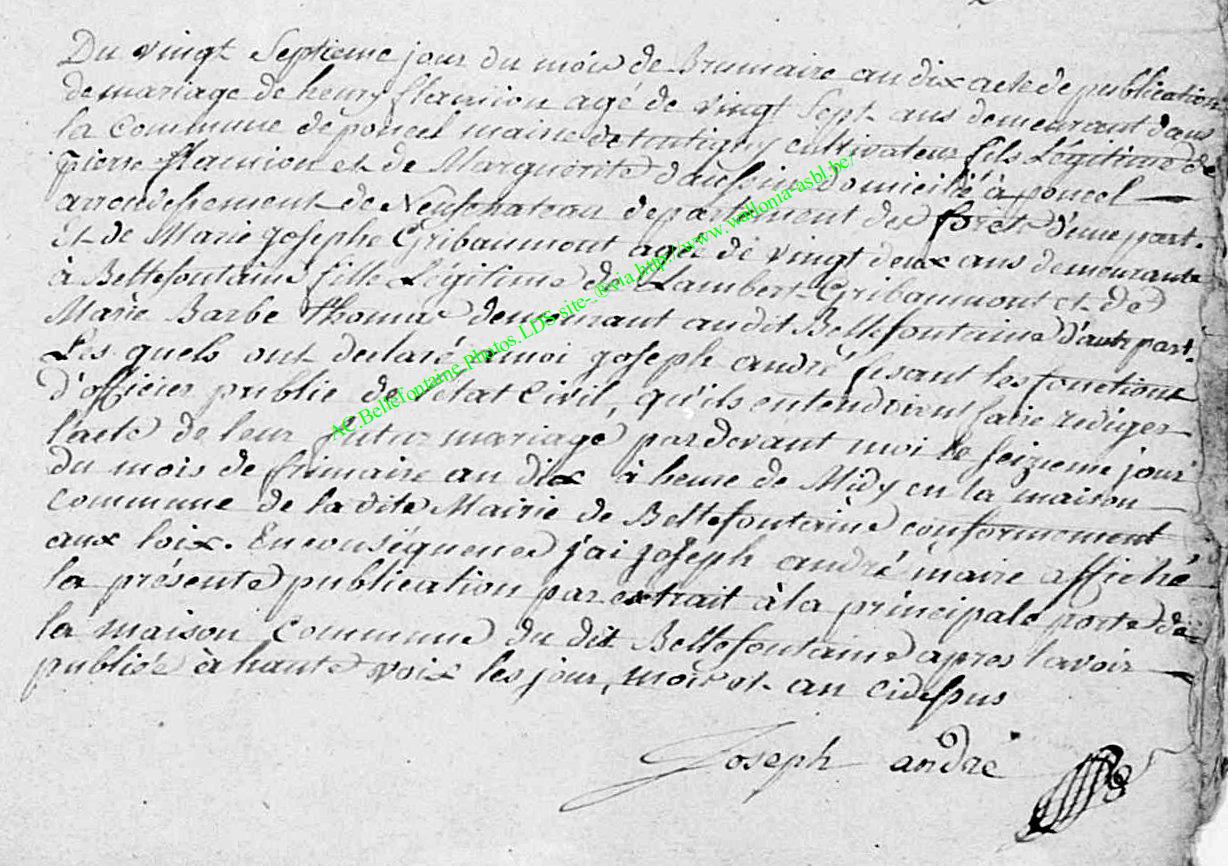 Du vingt Septieme jour du mois de Brumaire an dix acte de publication
de mariage de henry flamion agé de vingt Sept ans demeurant dans
la Commune de poncel mairie de tintigny cultivateur fils Légitime de
pierre flamion et de Marguerite domicilié à poncel
arrondissement de Neufchateau departement des forets d'une part.
Et de Marie josephe Gribaumont agée de vingt deux ans demeurante
à Bellefontaine fille Légitime de Lambert Gribaumont et de
Marie Barbe thomas demeurant audit Bellefontaine d'autre part.
Les quels ont declaré a moi joseph andré faisant les fonctions
d'officier public de l'état Civil, qu'ils entendoient faire rediger
l'acte de leur futur mariage pardevant moi le seizieme jour
du mois de frimaire an dix à heure de Midy en la maison
commune de la dite Mairie de Bellefontaine conformement
aux loix. En conséquence j'ai joseph andré maire affiché
la présente publication par extrait à la principale porte de
la maison commune du dit Bellefontaine apres l'avoir
publiée à haute voix les jour, mois et an cidessus
Joseph andré
AC.Bellefontaine.Photos.LDS-site-@via.http://www.wallonia-asbl.be/